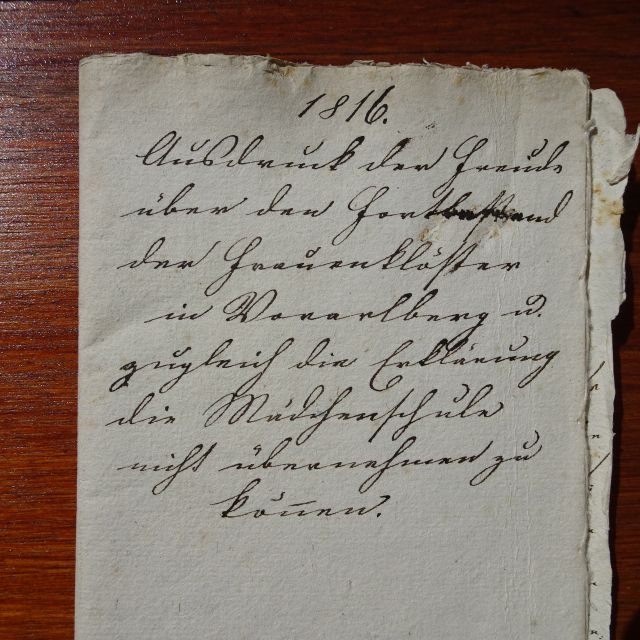 1816.
Ausdruck der Freude
über den Fortbestand
der Frauenklöster
in Vorarlberg u.
zugleich die Erklärung
die Mädchenschule
nicht übernehmen zu
können.